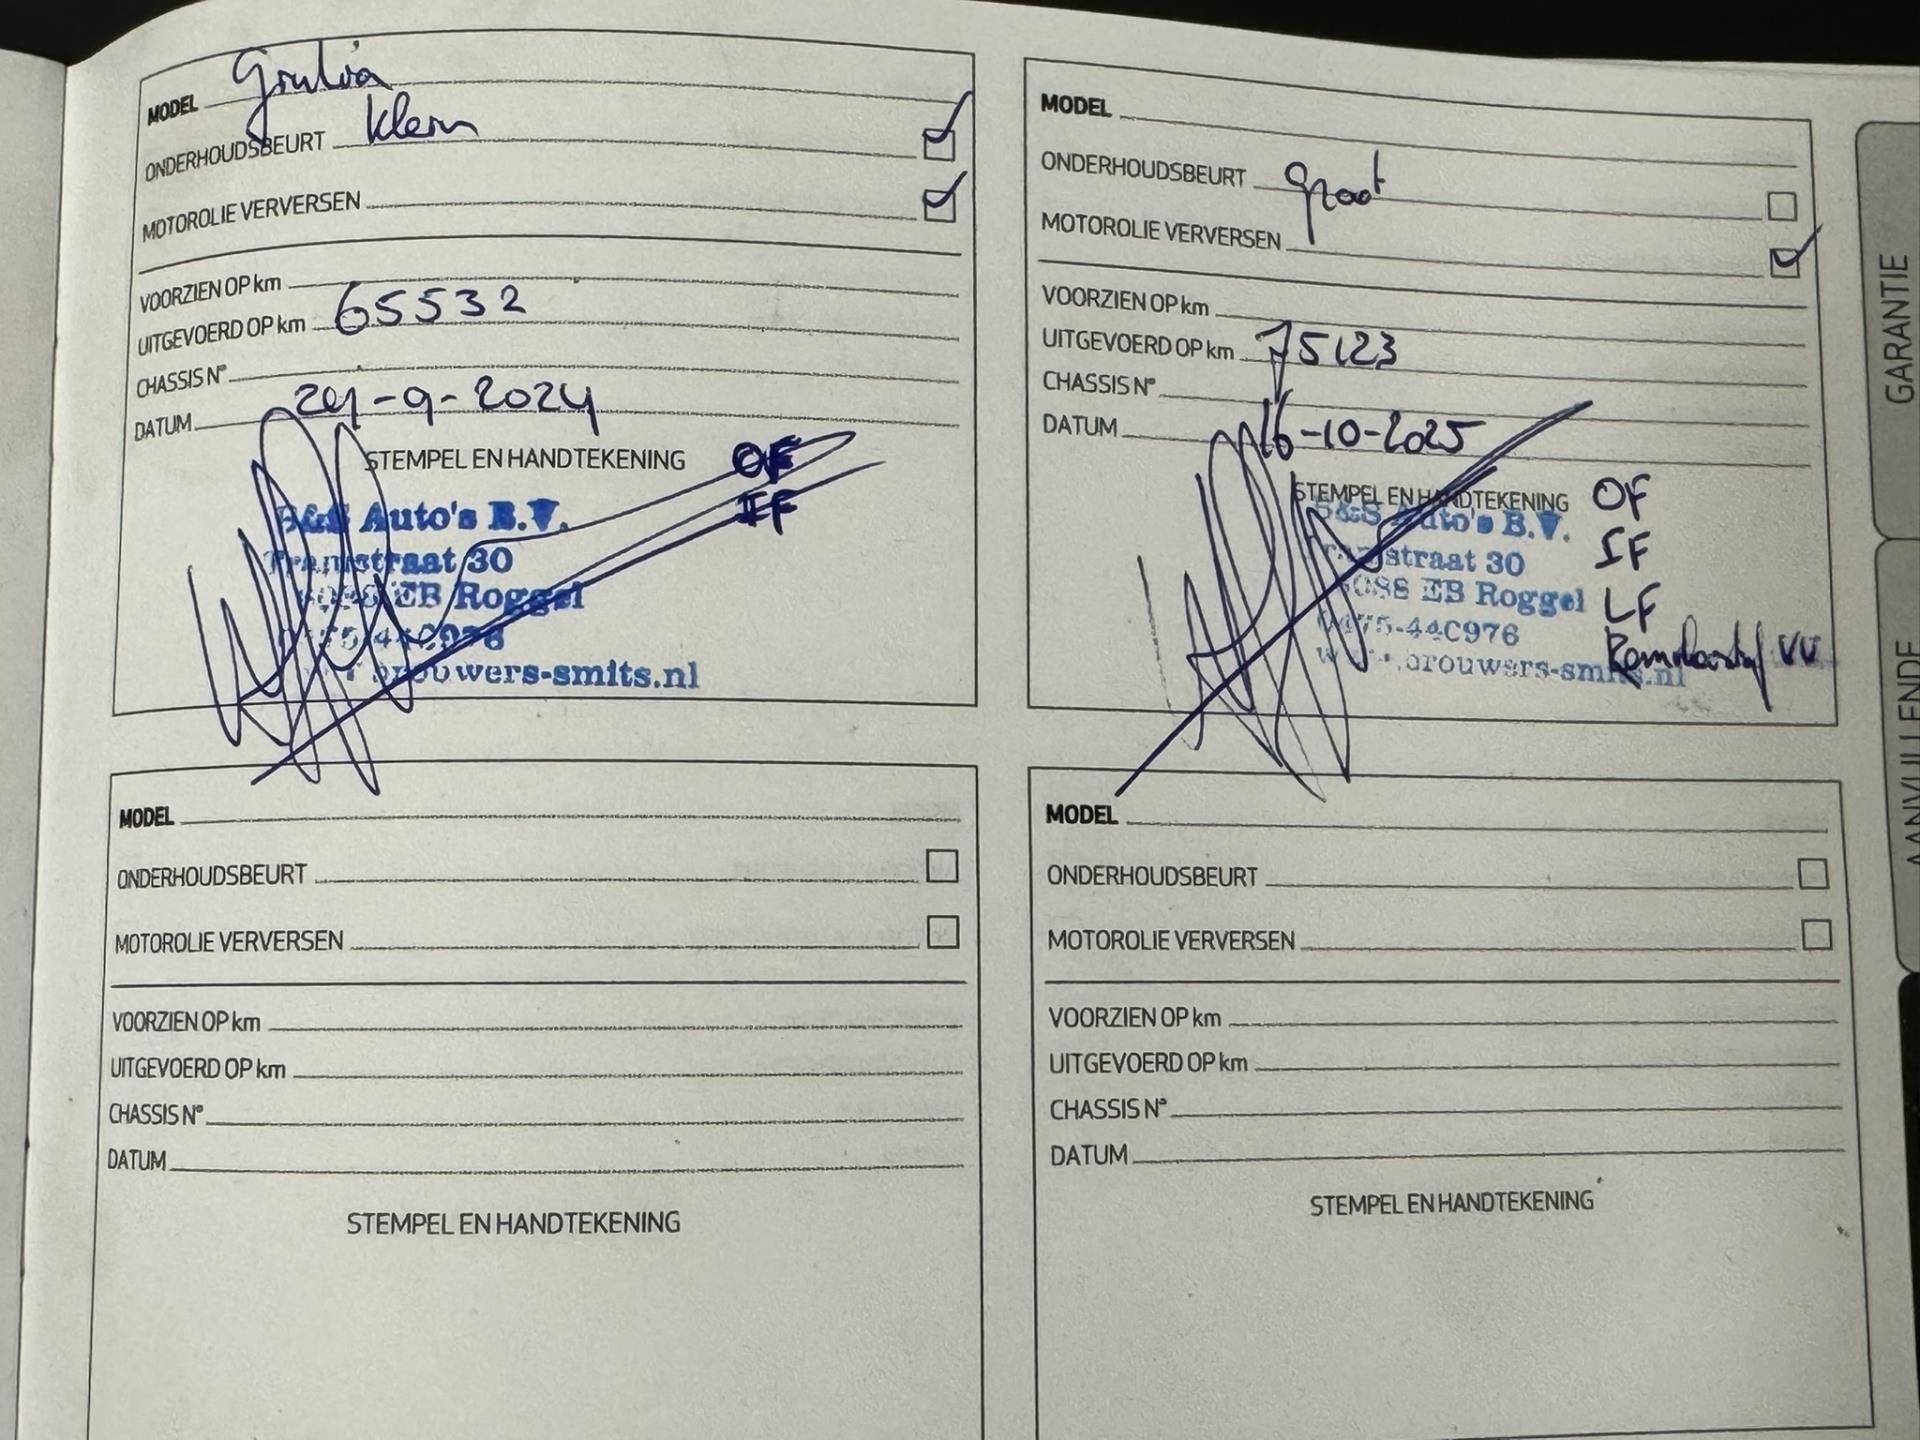 MODEL Giulia
ONDERHOUDSBEURT klein
MOTOROLIE VERVERSEN
VOORZIEN OP km
UITGEVOERD OP km 65532
CHASSIS N°
DATUM -9-2024
STEMPEL EN HANDTEKENING OF
IF
B&S Auto's B.V.
Tramstraat 30
6088 EB Roggel
0475-440976
brouwers-smits.nl
MODEL
ONDERHOUDSBEURT groot
MOTOROLIE VERVERSEN
VOORZIEN OP km
UITGEVOERD OP km 75123
CHASSIS N°
DATUM 16-10-2025
STEMPEL EN HANDTEKENING OF
B&S Auto's B.V.
IF
Tramstraat 30
6088 EB Roggel LF
0475-440976
Remvloeistof VV
www.brouwers-smits.nl
MODEL
ONDERHOUDSBEURT
MOTOROLIE VERVERSEN
VOORZIEN OP km
UITGEVOERD OP km
CHASSIS N°
DATUM
STEMPEL EN HANDTEKENING
MODEL
ONDERHOUDSBEURT
MOTOROLIE VERVERSEN
VOORZIEN OP km
UITGEVOERD OP km
CHASSIS N°
DATUM
STEMPEL EN HANDTEKENING
GARANTIE
AANVULLENDE